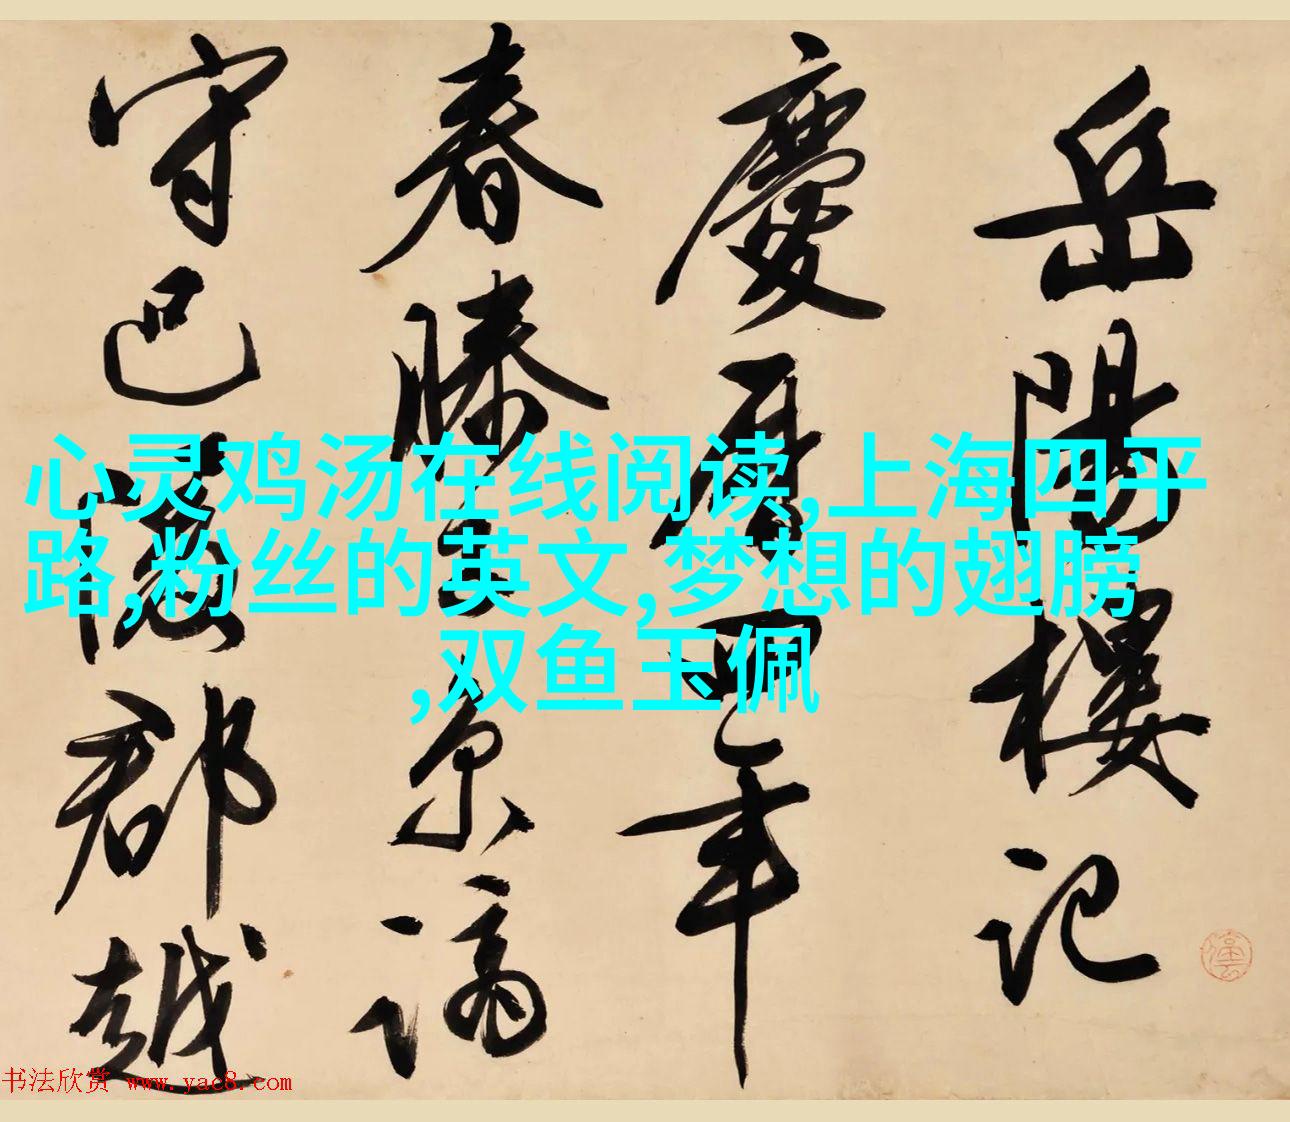 岳陽樓记
慶曆四年
春滕子京謫
守巴陵郡越
心灵鸡汤在线阅读,上海四平
路,粉丝的英文,梦想的翅膀
,双鱼玉佩
书法欣赏 www.yac8.com